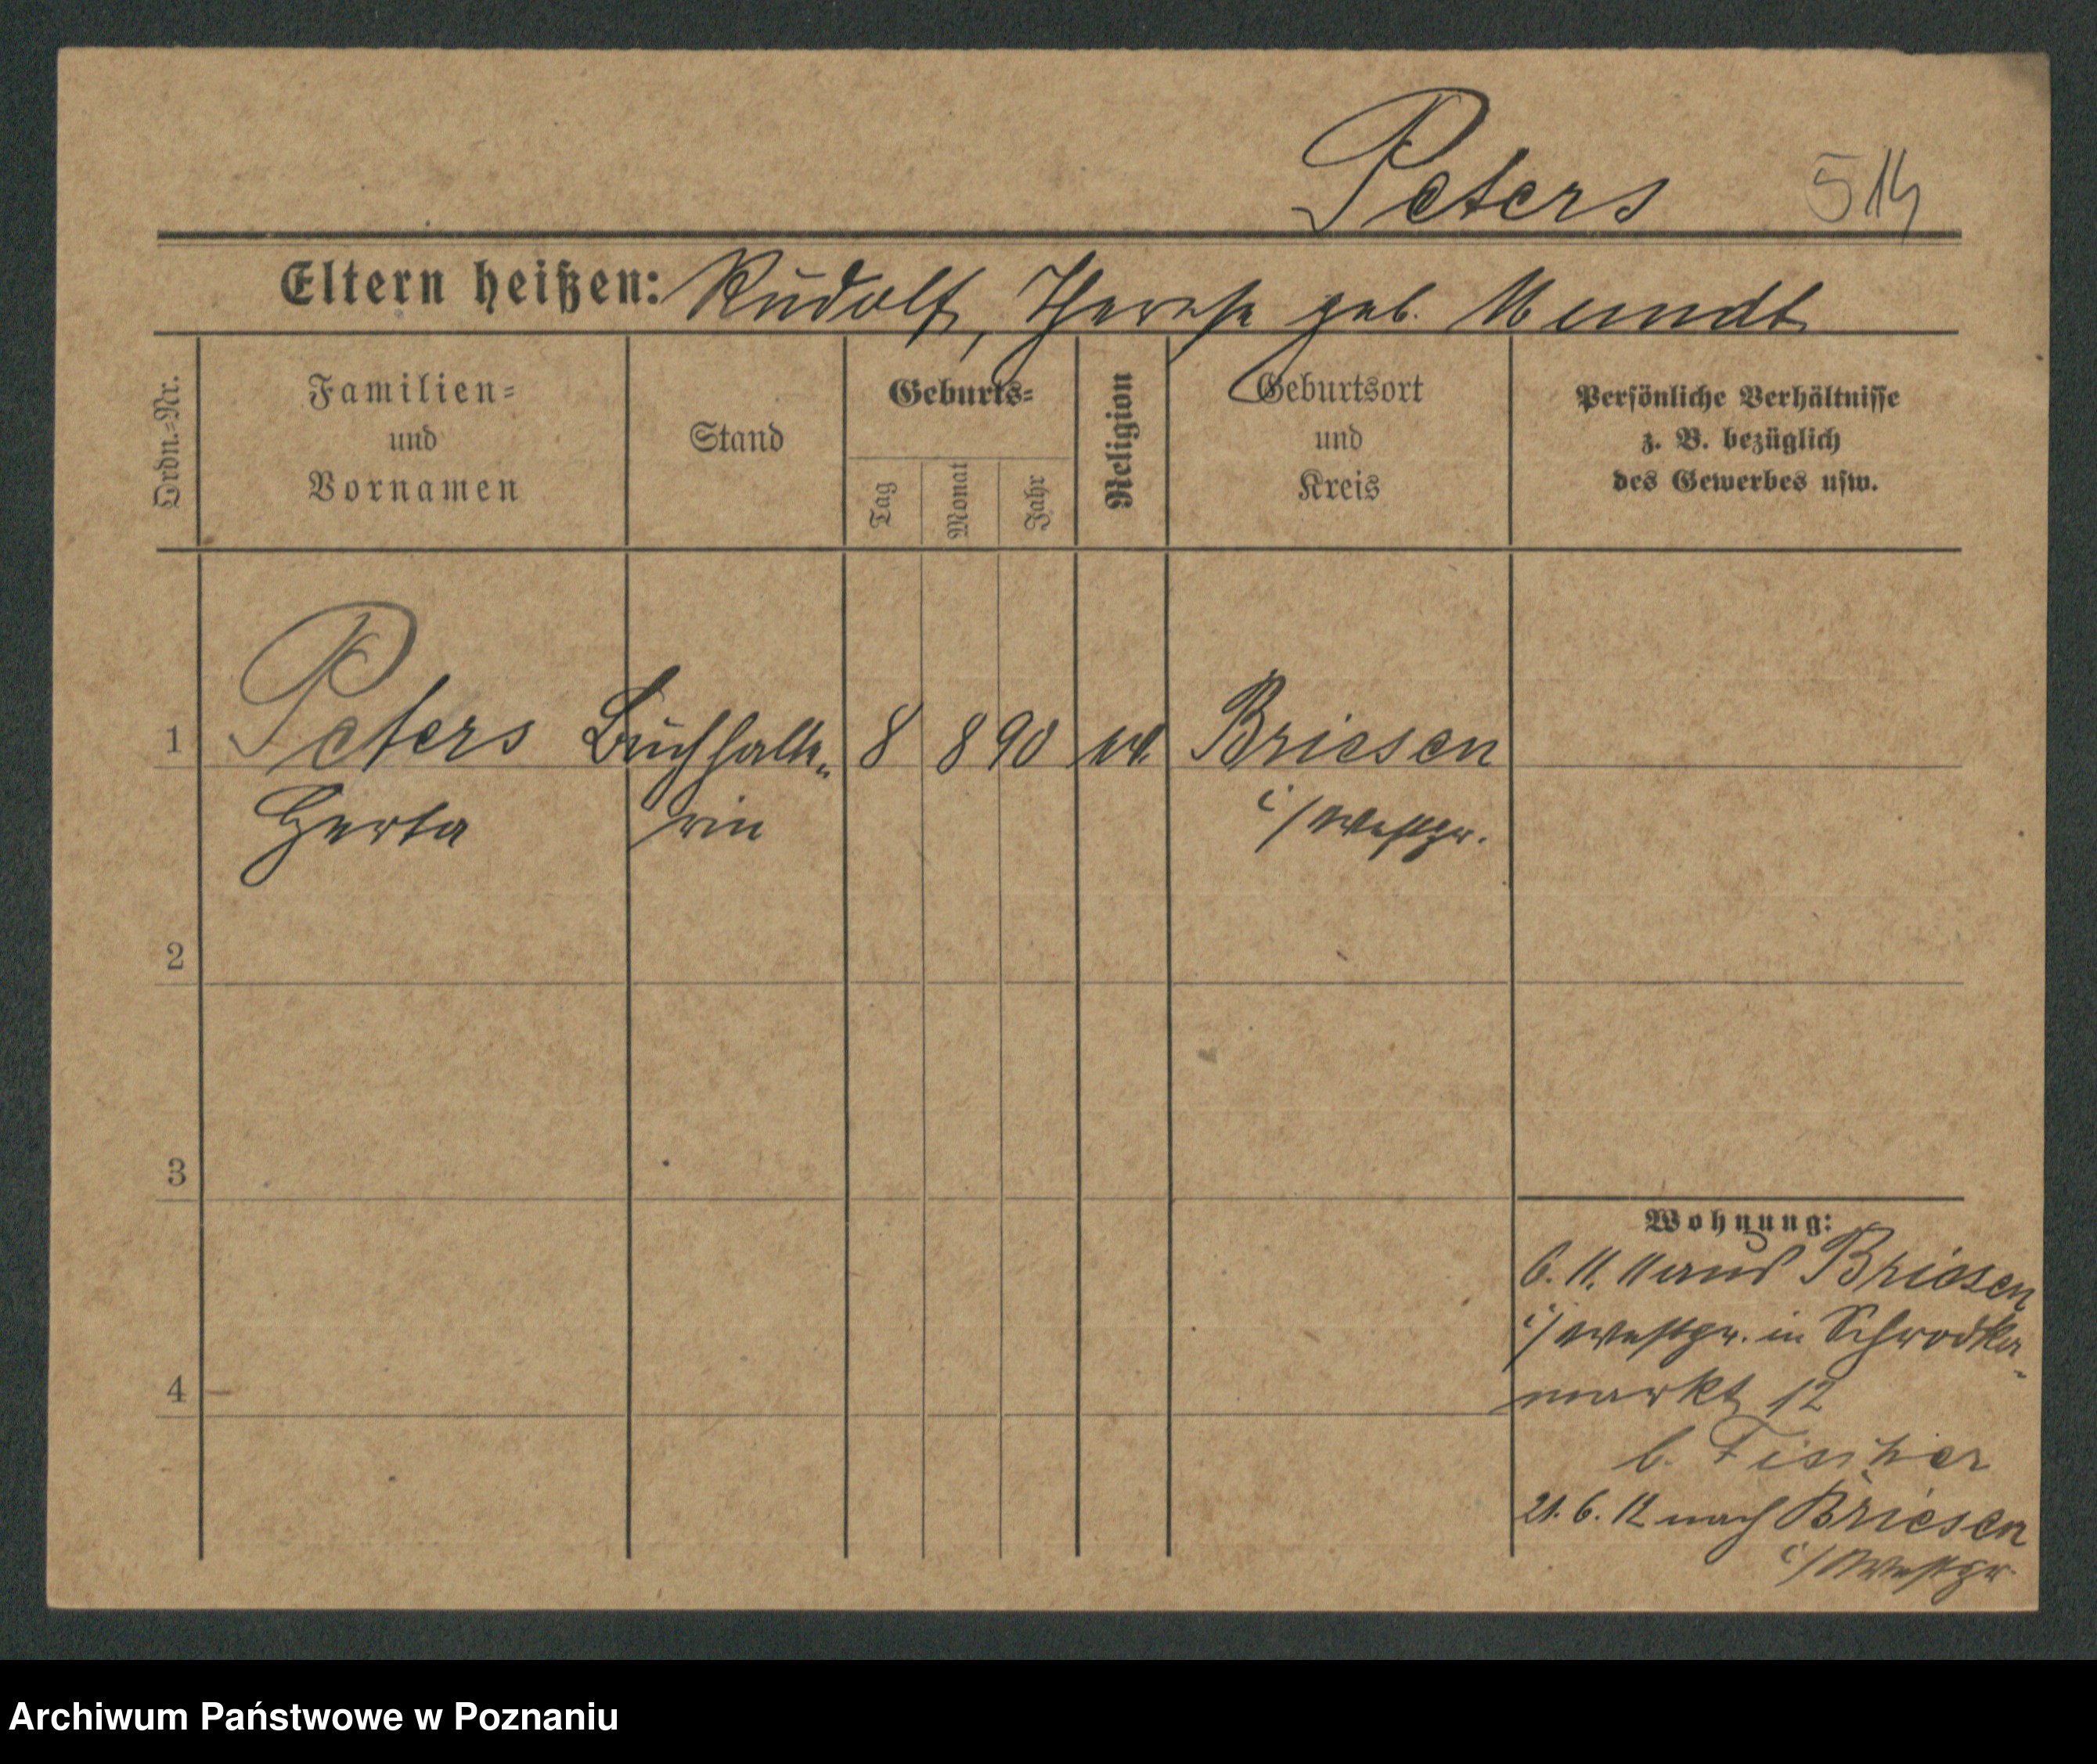 Peters 514
Eltern heißen: Rudolf, Therese geb. Mundt
Ordn.-Nr.
Familien-
und
Vornamen
Stand
Geburts-
Tag
Monat
Jahr
Religion
Geburtsort
und
Kreis
Persönliche Verhältnisse
z. B. bezüglich
des Gewerbes usw.
1 Peters Buchhalte- 8 8 90 Briesen
Herta rin i/Westpr.
2
3
4
Wohnung:
6. 11. 11 aus Briesen
i/Westpr. in Schrodka-
markt 12
b. Fischer
21. 6. 12 nach Briesen
i/Westpr.
Archiwum Państwowe w Poznaniu